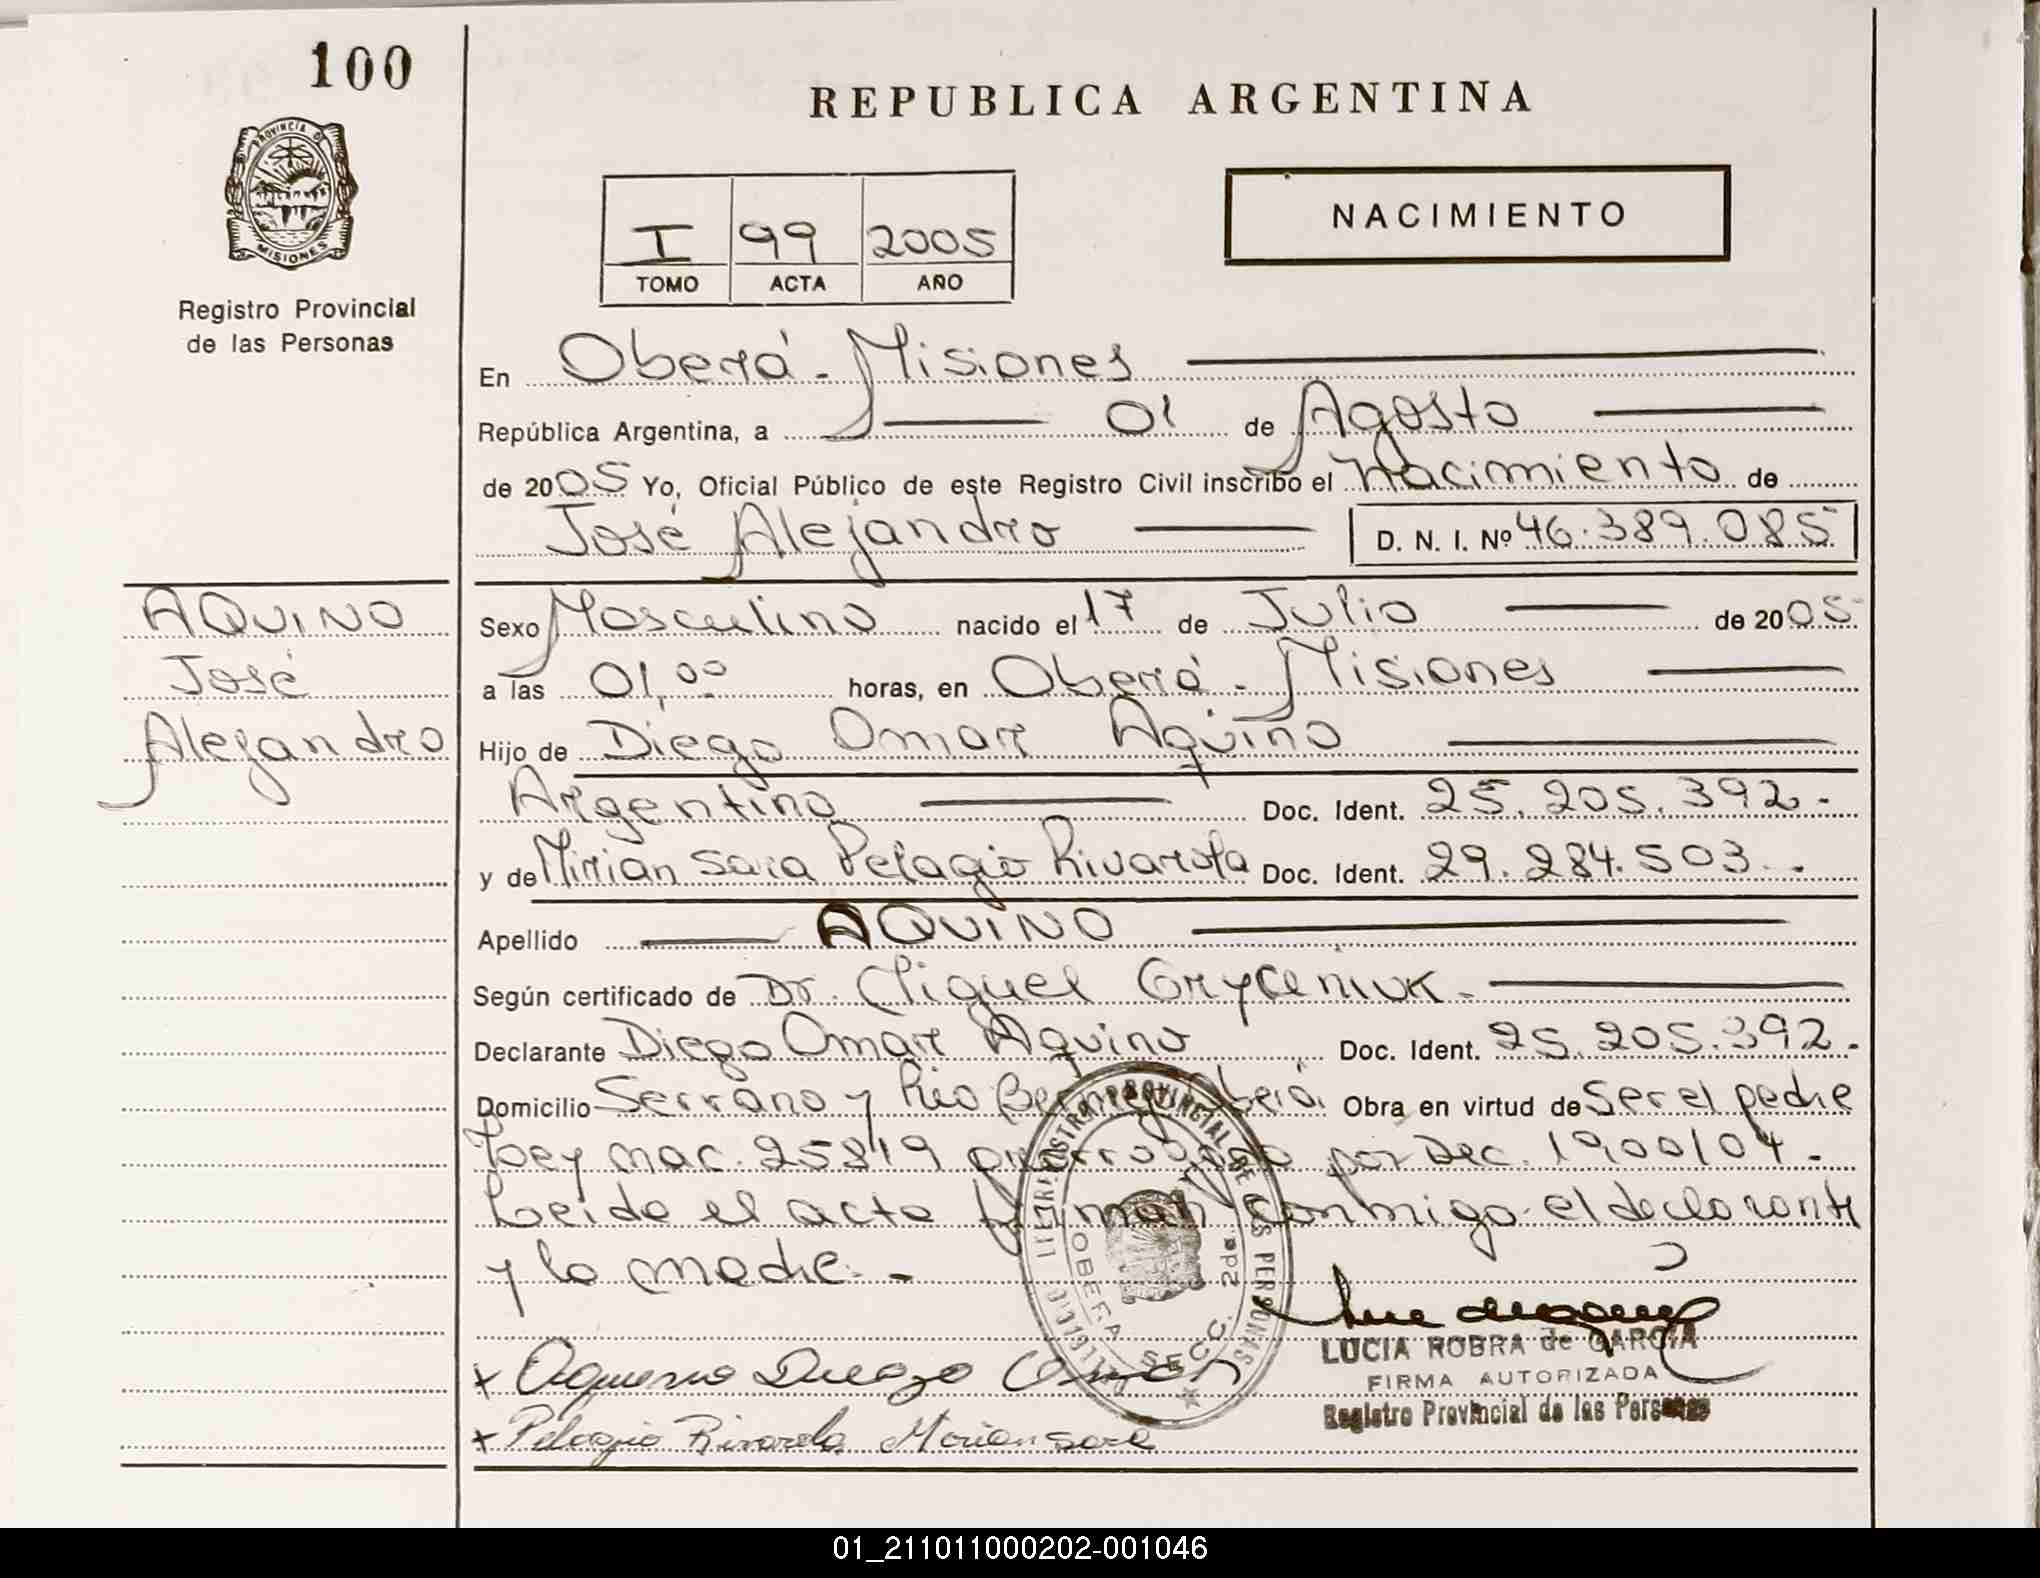 100
REPUBLICA ARGENTINA
PROVINCIA DE MISIONES
I 99 2005
TOMO ACTA AÑO
NACIMIENTO
Registro Provincial
de las Personas
En Oberá - Misiones
República Argentina, a 01 de Agosto
de 2005 Yo, Oficial Público de este Registro Civil inscribo el nacimiento de
José Alejandro D. N. I. Nº 46.389.085
AQUINO
José
Alejandro
Sexo Masculino nacido el 17 de Julio de 2005
a las 01,00 horas, en Oberá - Misiones
Hijo de Diego Omar Aquino
Argentino Doc. Ident. 25.205.392.-
y de Mirian Sara Pelagio Rivarola Doc. Ident. 29.284.503.-
Apellido AQUINO
Según certificado de Dr. Miguel Gryceniuk.
Declarante Diego Omar Aquino Doc. Ident. 25.205.392.
Domicilio Serrano y Rio Oberá. Obra en virtud de ser el padre
Ley nac. 25819 prorrogado por Dec. 1900/04.
Leida el acta firman conmigo el declarante
y la madre.-
REGISTRO PROVINCIAL DE LAS PERSONAS
OBERA SECC. 2da.
LUCIA ROBRA de GARCIA
FIRMA AUTORIZADA
Registro Provincial de las Personas
x Aquino Diego Omar
x Pelagio Rivarola Mirian sara
01_211011000202-001046